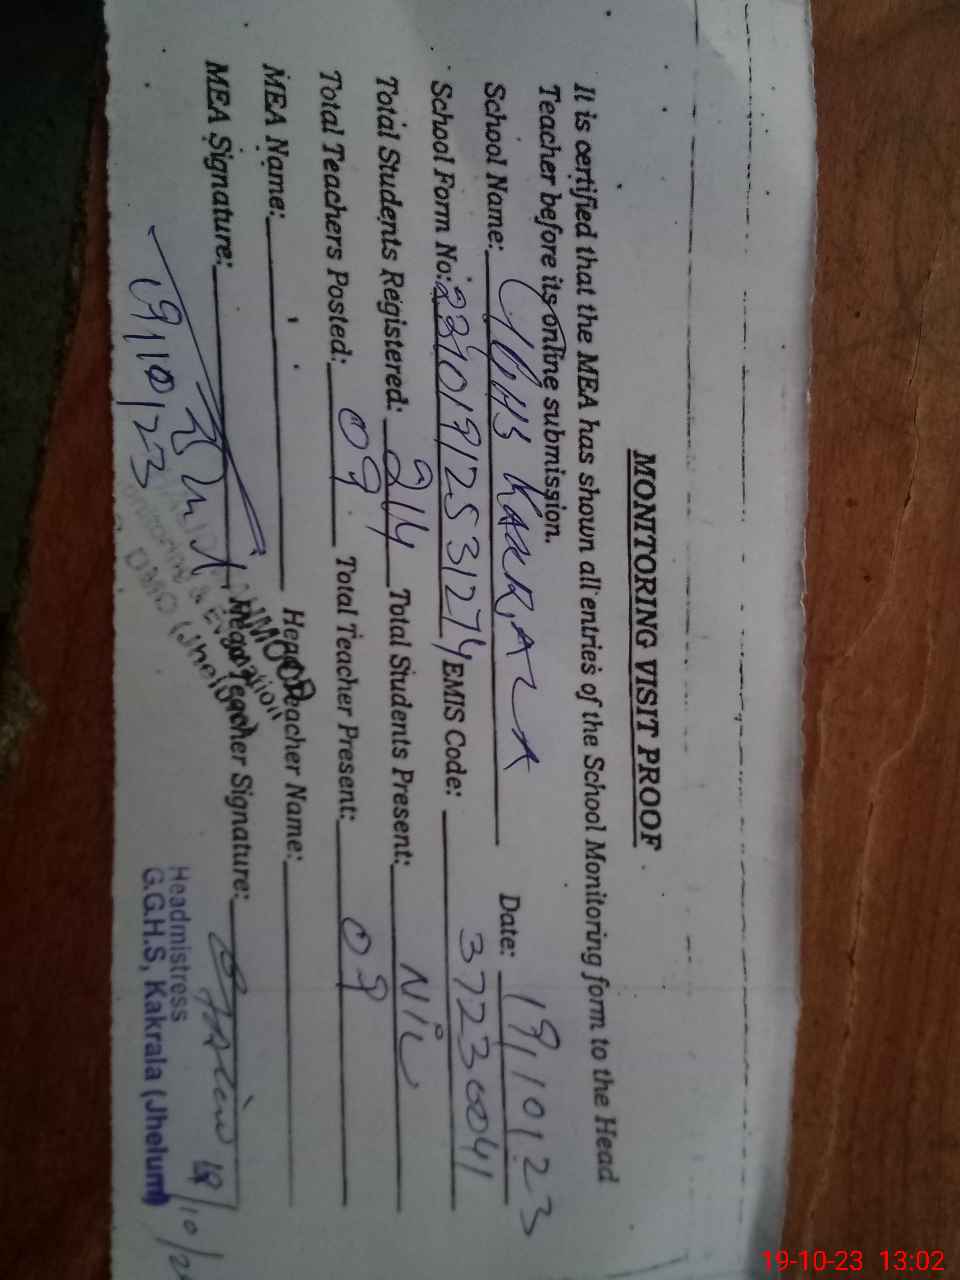 MONITORING VISIT PROOF
It is certified that the MEA has shown all entries of the School Monitoring form to the Head
Teacher before its online submission.
School Name: GGHS KAKRALA Date: 19/10/23
School Form No: EMIS Code: 37230041
Total Students Registered: 214 Total Students Present: NIL
Total Teachers Posted: 09 Total Teacher Present: 09
MEA Name: Head Teacher Name:
MEA Signature: Head Teacher Signature:
19/10/23
Headmistress
G.G.H.S, Kakrala (Jhelum)
19-10-23 13:02